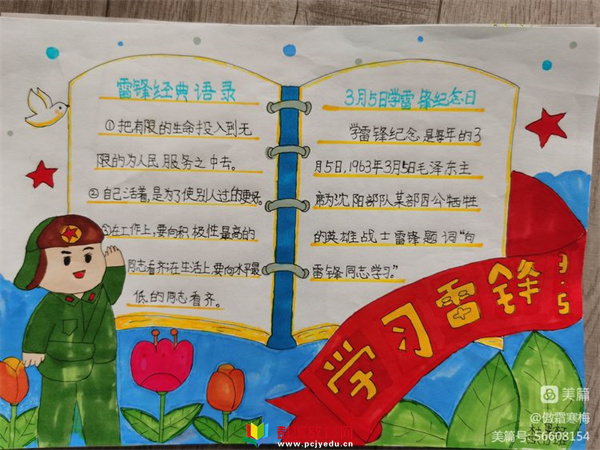 雷锋经典语录
①把有限的生命投入到无
限的为人民服务之中去。
②自己活着,是为了使别人过的更好。
在工作上,要向积极性最高的
同志看齐在生活上,要向水平最
低的同志看齐。
3月5日学雷锋纪念日
学雷锋纪念是每年的3
月5日,1963年3月5日毛泽东主
席为沈阳部队某部因公牺牲
的英雄战士雷锋题词"向
雷锋同志学习。"
学习雷锋
3.5
美篇
@傲霜寒梅
美篇号:56608154
www.pcjyedu.cn